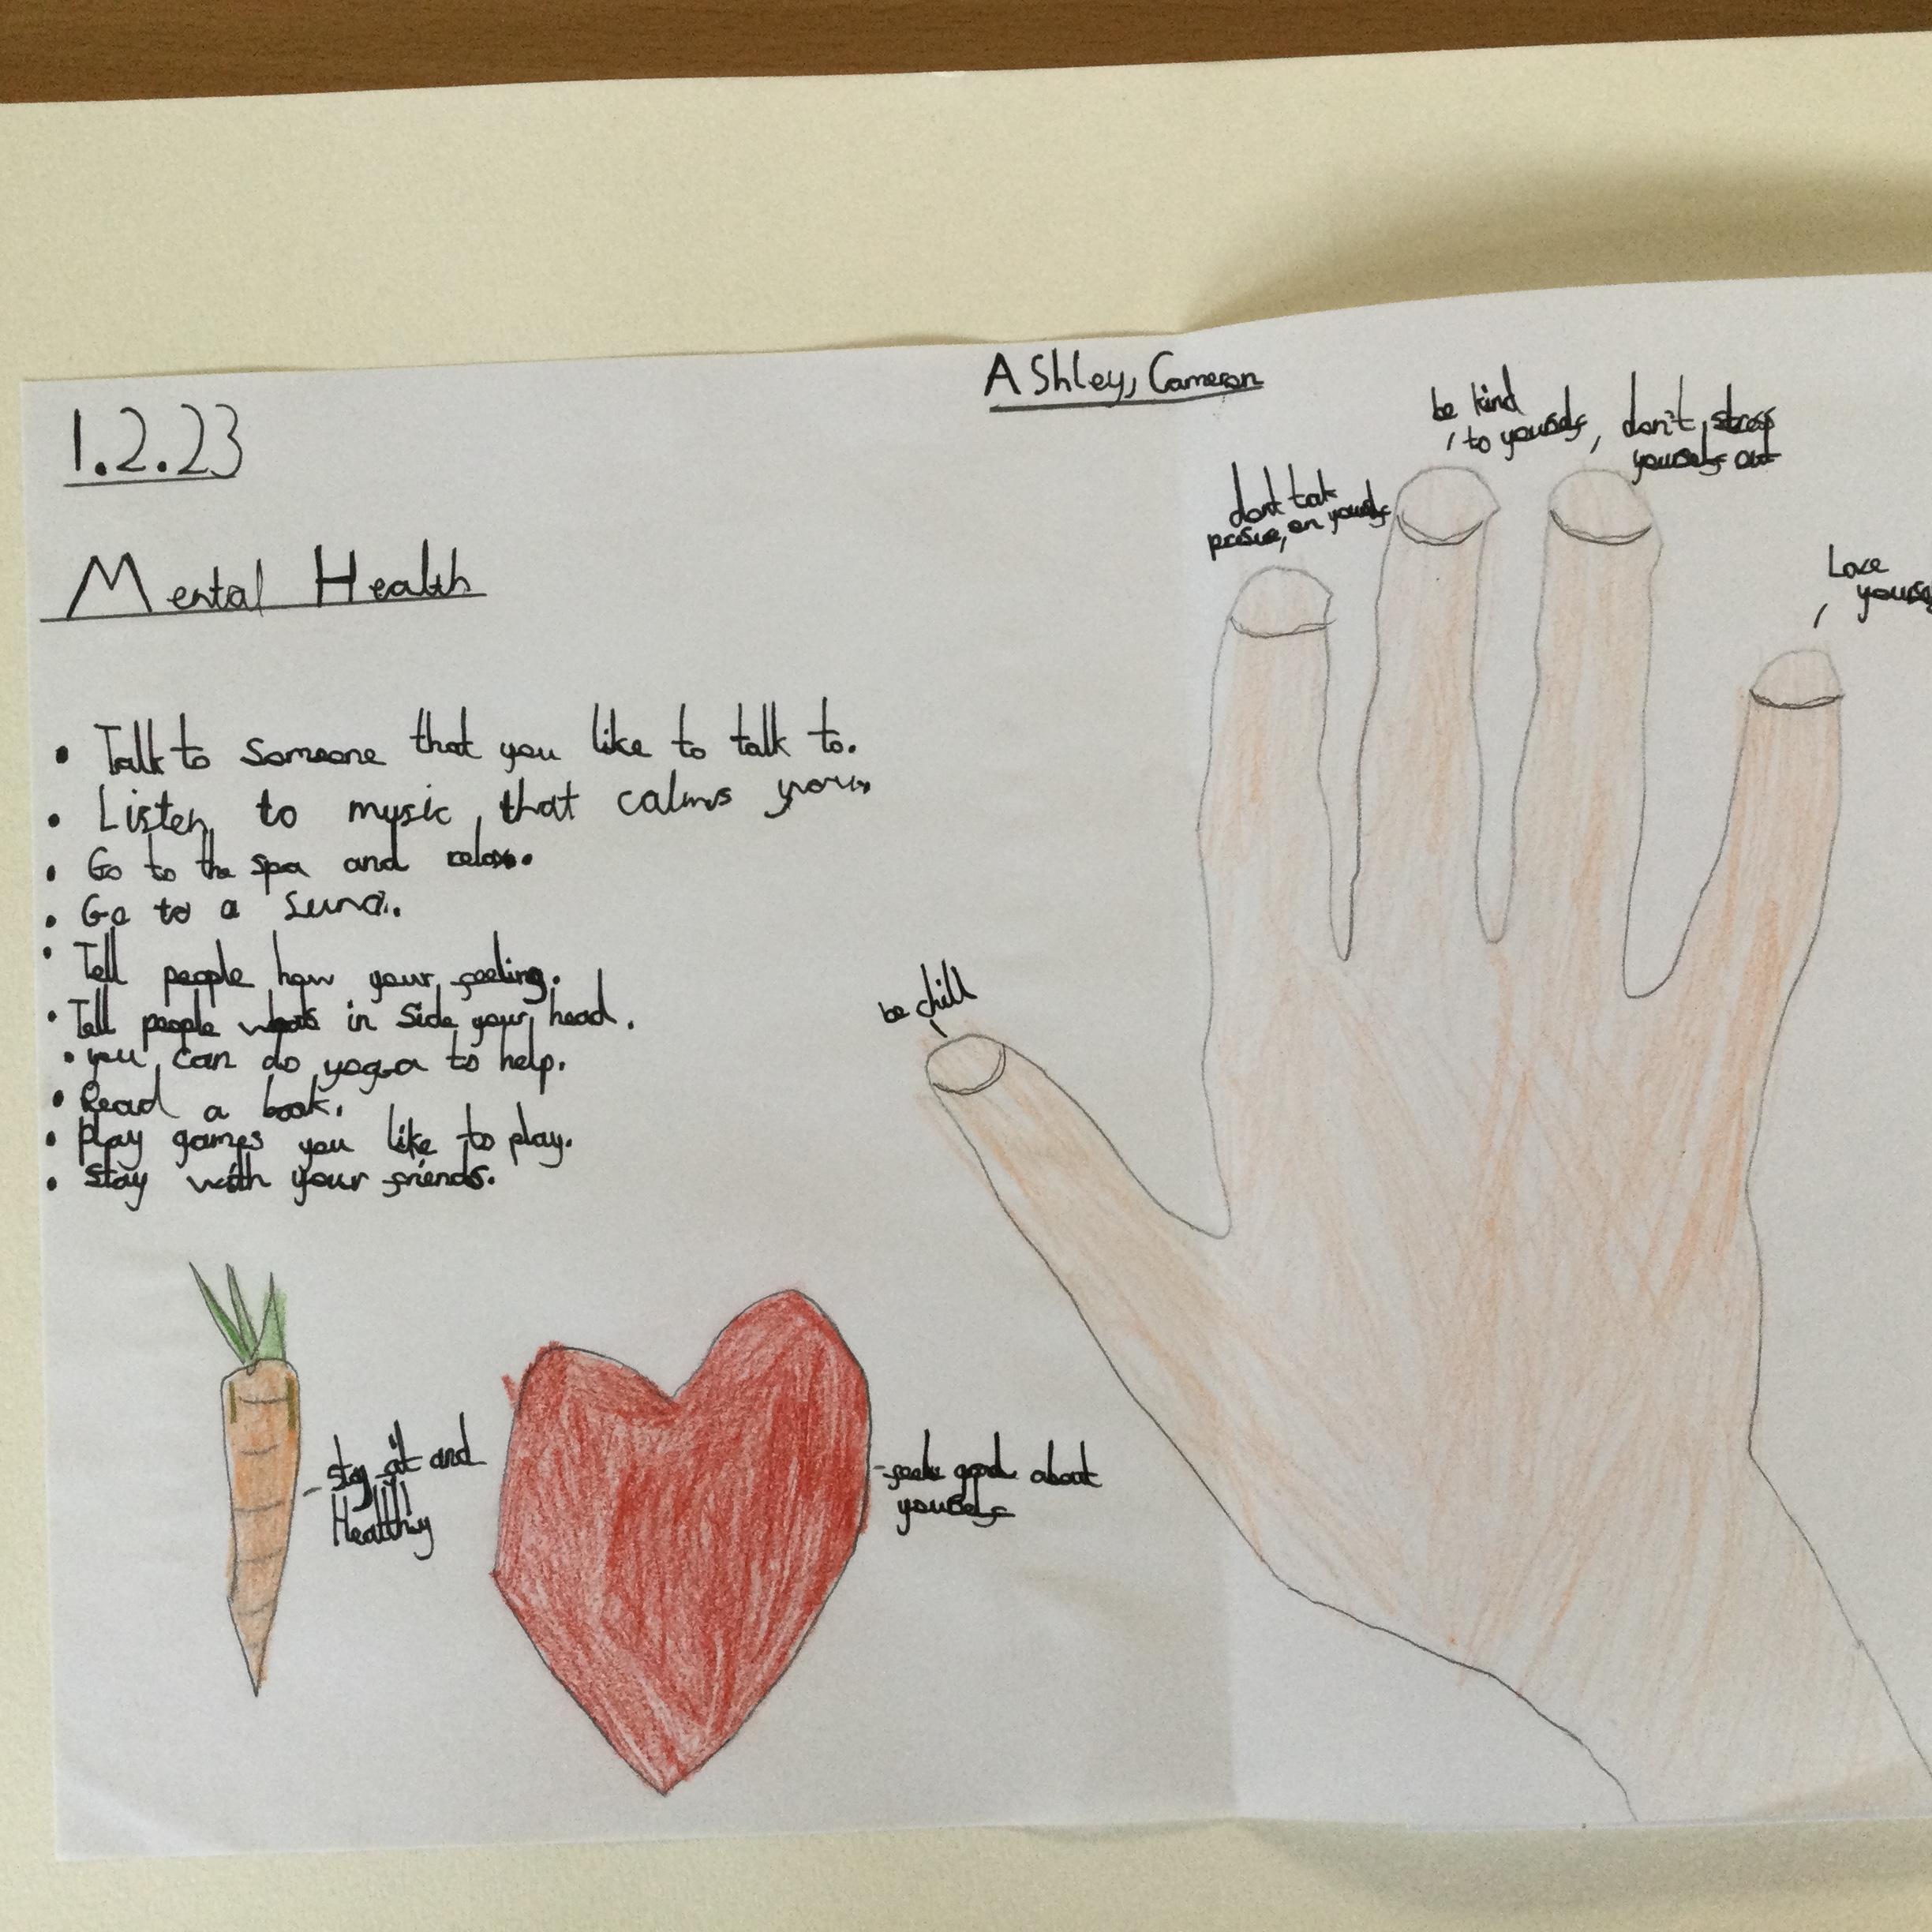 1.2.23
AShley, Cameron
Mental Health
• Talk to Someone that you like to talk to.
• Listen to music that calms you.
• Go to the spa and relax.
• Go to a Suna.
• Tell people how your feeling.
• Tell people whats in Side your head.
• you can do yoga to help.
• Read a book.
• Play games you like to play.
• Stay with your friends.
- stay fit and
Healthy
- feele good about
yourself
be chill
dont
on yourself
be kind
to yourself
don't stress
yourself out
Love